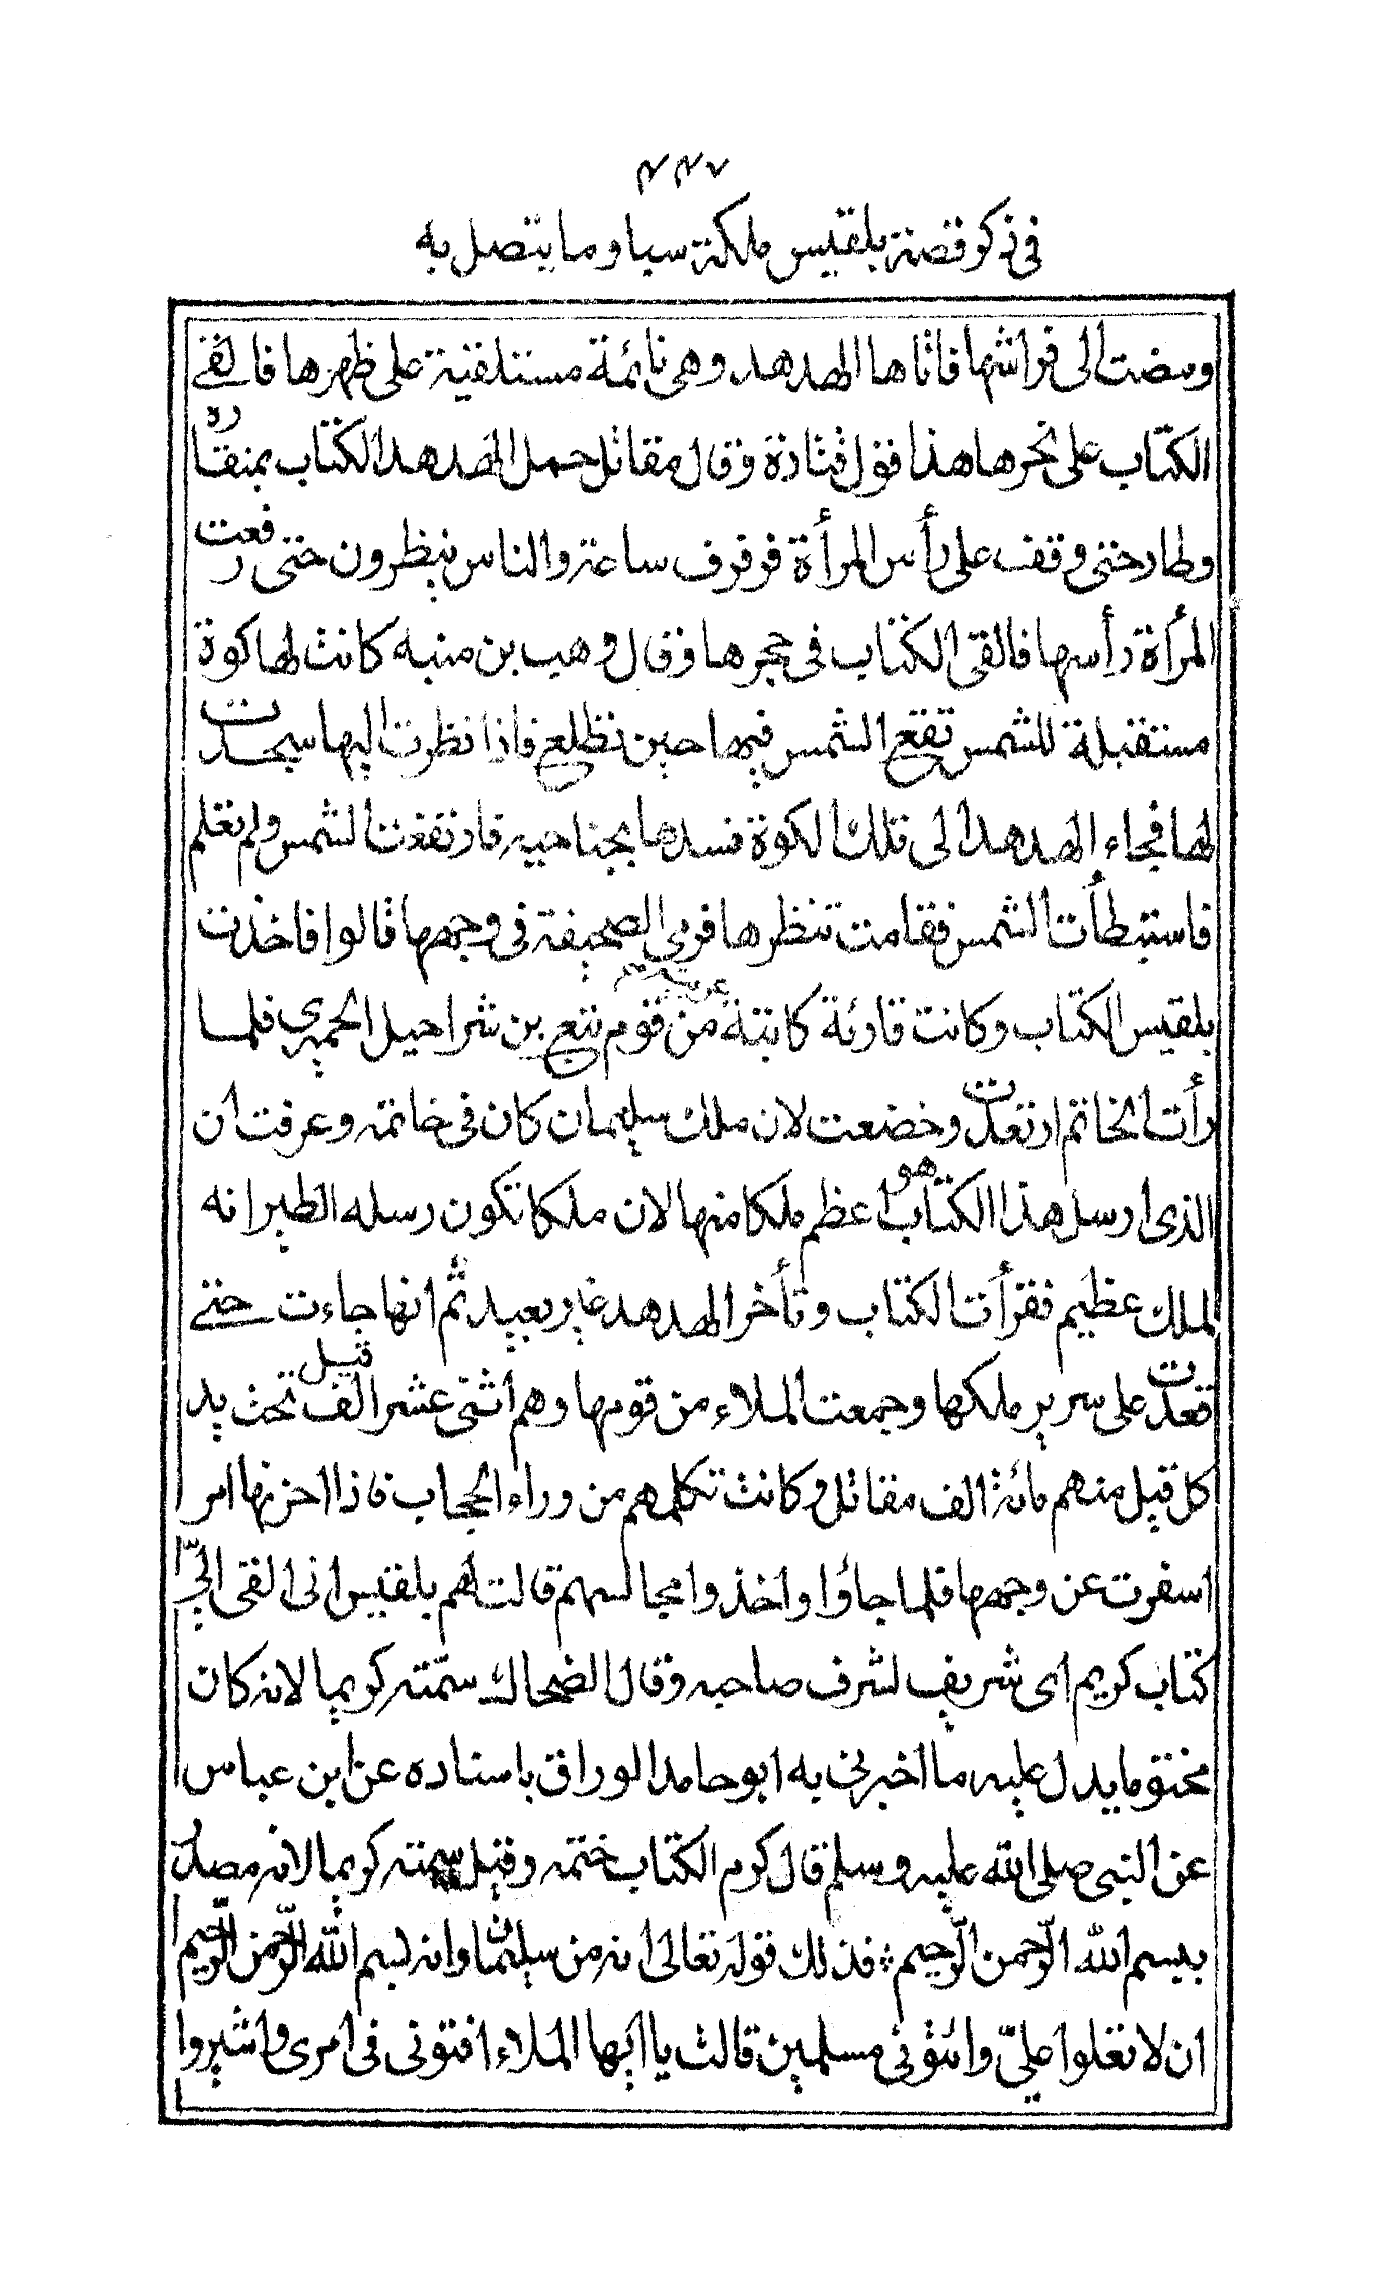 ٤٤٧
في ذكر قصة بلقيس ملكة سبا وما يتصل به
ومضت الى فراشها فاتاها الهدهد وهي نائمة مستلقية على ظهرها فالقى
الكتاب على نحرها هذا قول قتادة وقال مقاتل حمل الهدهد الكتاب بمنقاره
وطار حتى وقف على رأس المرأة فرفرف ساعة والناس ينظرون حتى رفعت
المرأة رأسها فالقى الكتاب في حجرها وقال وهب بن منبه كانت لها كوة
مستقبلة للشمس تقع الشمس فيها حين تطلع فاذا نظرت اليها سجدت
لها فجاء الهدهد الى تلك الكوة فسدها بجناحيه فارتفعت الشمس ولم تعلم
فاستبطأت الشمس فقامت تنظرها فرمى الصحيفة في وجهها قالوا فاخذت
بلقيس الكتاب وكانت قارئة كاتبة عربية من قوم تبع بن شراحيل الحميري فلما
رأت الخاتم ارتعدت وخضعت لان ملك سليمان كان في خاتمه وعرفت ان
الذى ارسل هذا الكتاب هو اعظم ملكا منها لان ملكا تكون رسله الطير انه
لملك عظيم فقرأت الكتاب وتأخر الهدهد غير بعيد ثم انها جاءت حتى
قعدت على سرير ملكها وجمعت الملاء من قومها وهم اثنى عشر الف قيل تحت يد
كل قيل منهم مائة الف مقاتل وكانت تكلمهم من وراء الحجاب فاذا احزنها امر
اسفرت عن وجهها فلما جاؤا واخذوا مجالسهم قالت لهم بلقيس انى القى اليّ
كتاب كريم اى شريف لشرف صاحبه وقال الضحاك سمّته كريما لانه كان
مختوما يدل عليه ما اخبرني به ابو حامد الوراق باسناده عن ابن عباس
عن النبى صلى الله عليه وسلم قال كرم الكتاب ختمه وقيل سمته كريما لانه مصدر
ببسم الله الرّحمن الرّحيم فذلك قوله تعالى انه من سليمان وانه بسم الله الرّحمن الرّحيم
ان لا تعلوا عليّ وائتوني مسلمين قالت يا ايها الملاء افتونى فى امرى واشيروا